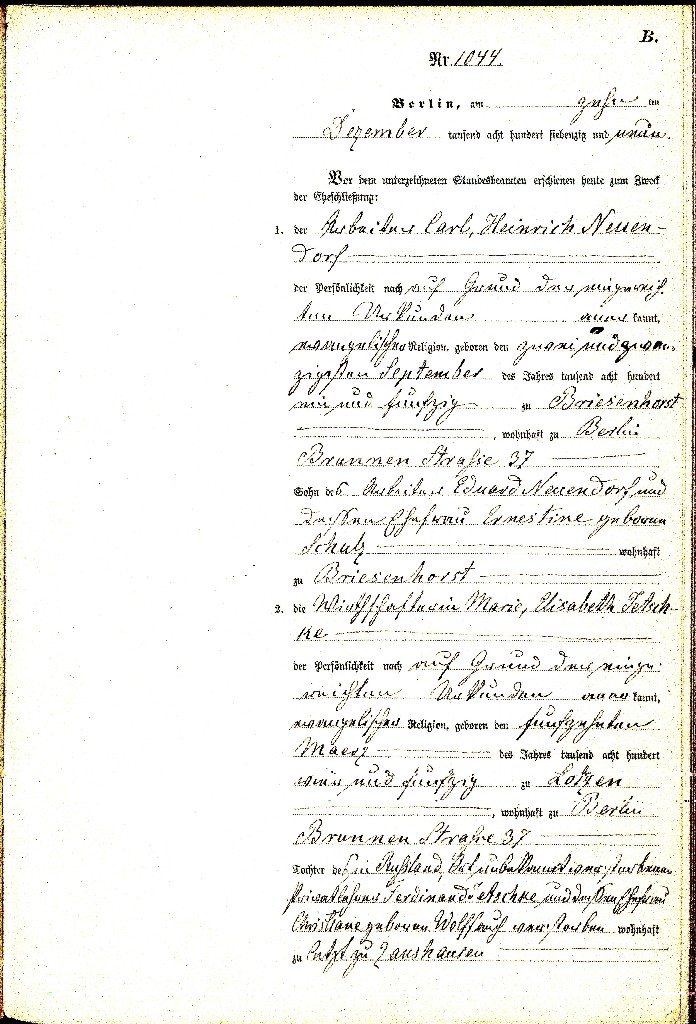 B.
Nr. 1044.
Berlin, am zehn ten
Dezember tausend acht hundert siebenzig und neun.
Vor dem unterzeichneten Standesbeamten erschienen heute zum Zweck
der Eheschließung:
1. der Arbeiter Carl, Heinrich Neuen-
dorf
der Persönlichkeit nach auf Grund der eingereich-
ten Urkunden aner kannt,
evangelischer Religion, geboren den zwei und zwan-
zigsten September des Jahres tausend acht hundert
und fünfzig zu Briesenhorst
, wohnhaft zu Berlin
Brunnen Straße 37
Sohn des Arbeiters Eduard Neuendorf und
dessen Ehefrau Ernestine geboren
Schulz wohnhaft
zu Briesenhorst
2. die Wirthschafterin Marie, Elisabeth Tetsch-
ke
der Persönlichkeit nach auf Grund der einge-
reichten Urkunden aner kannt,
evangelischer Religion, geboren den fünfzehnten
Maerz des Jahres tausend acht hundert
und fünfzig zu
, wohnhaft zu Berlin
Brunnen Straße 37
Tochter des in Rußland, Ort unbekannt verstorbenen
Privatlehrers Ferdinand Tetschke, und dessen Ehefrau
Christiane geboren Wolff auch verstorben wohnhaft
zu letzt zu Zanshausen